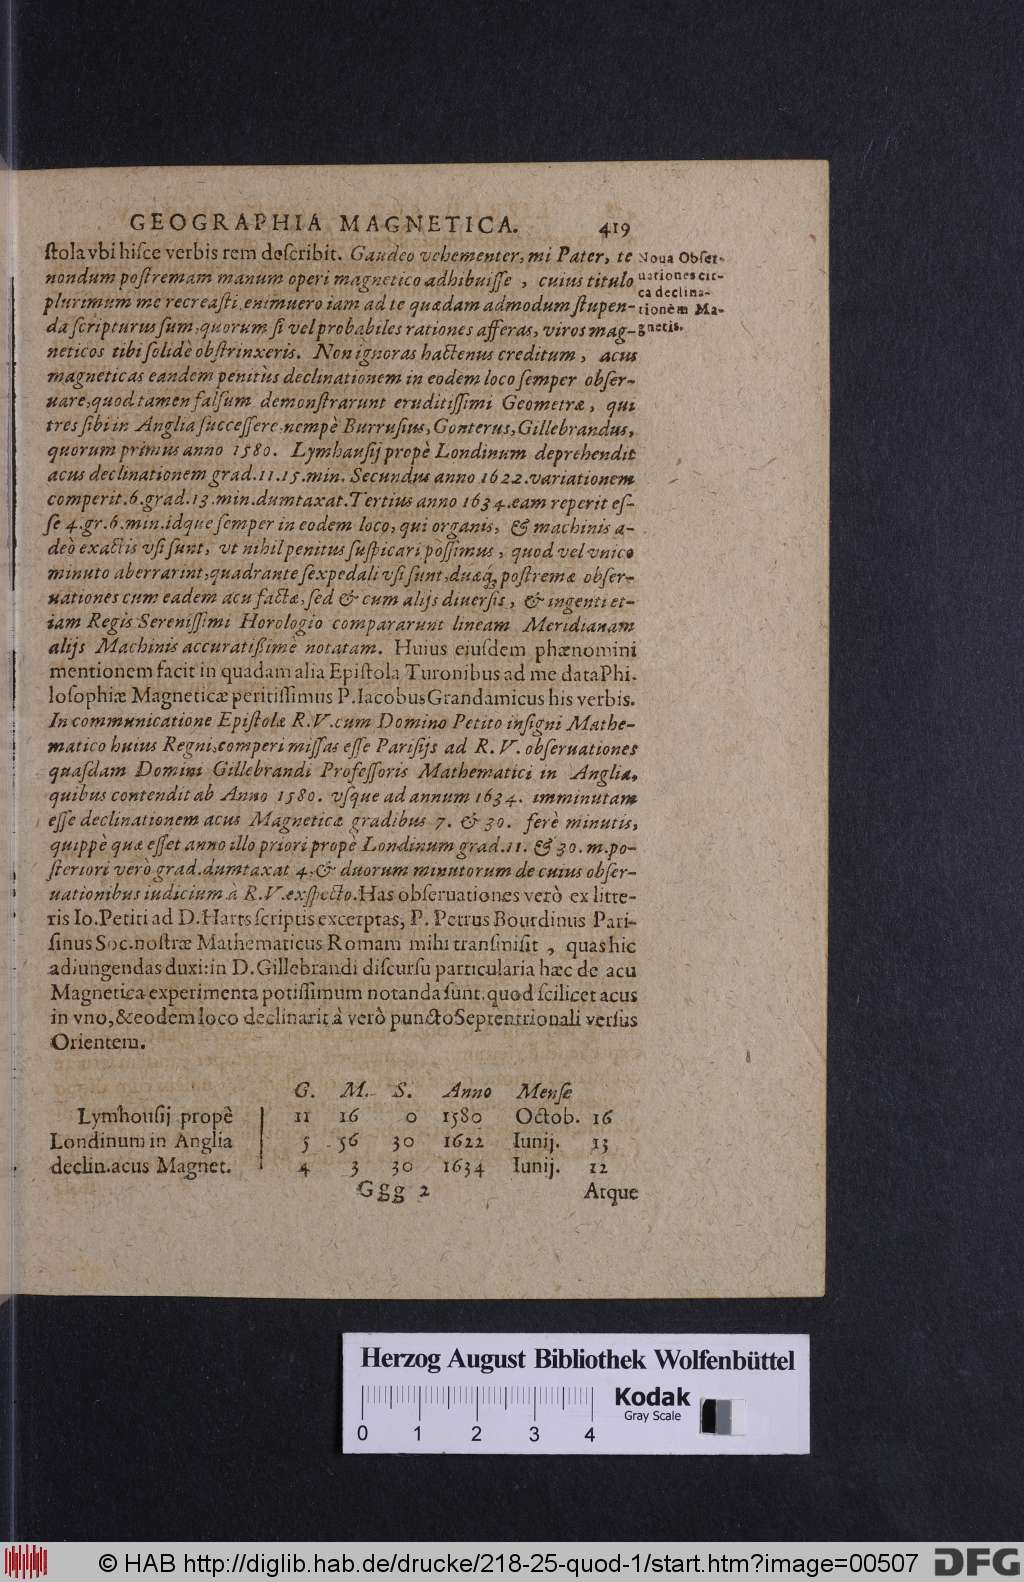 GEOGRAPHIA MAGNETICA. 419
ſtola vbi hiſce verbis rem deſcribit. Gaudeo vehementer, mi Pater, te
nondum poſtremam manum operi magnetico adhibuiſſe, cuius titulo
plurimum me recreaſti, enimuero iam ad te quædam admodum ſtupen-
da ſcripturus ſum, quorum ſi vel probabiles rationes afferas, viros mag-
neticos tibi ſolidè obſtrinxeris. Non ignoras hactenus creditum, acus
magneticas eandem penitùs declinationem in eodem loco ſemper obſer-
uare, quod tamen falſum demonſtrarunt eruditiſſimi Geometræ, qui
tres ſibi in Anglia ſucceſſere nempè Burruſius, Gonterus, Gillebrandus,
quorum primus anno 1580. Lymhauſij propè Londinum deprehendit
acus declinationem grad. 11. 15. min. Secundus anno 1622. variationem
comperit. 6. grad. 13. min. dumtaxat. Tertius anno 1634. eam reperit eſ-
ſe 4. gr. 6. min. idque ſemper in eodem loco, qui organis, & machinis a-
deò exactis vſi ſunt, vt nihil penitus ſuſpicari poſſimus, quod vel vnico
minuto aberrarint, quadrante ſexpedali vſi ſunt, duæq; poſtremæ obſer-
uationes cum eadem acu factæ, ſed & cum alijs diuerſis, & ingenti et-
iam Regis Sereniſſimi Horologio compararunt lineam Meridianam
alijs Machinis accuratiſſimè notatam. Huius eiuſdem phænomini
mentionem facit in quadam alia Epiſtola Turonibus ad me data Phi-
loſophiæ Magneticæ peritiſſimus P. Iacobus Grandamicus his verbis.
In communicatione Epiſtolæ R. V. cum Domino Petito inſigni Mathe-
matico huius Regni, comperi miſſas eſſe Pariſijs ad R. V. obſeruationes
quaſdam Domini Gillebrandi Profeſſoris Mathematici in Anglia,
quibus contendit ab Anno 1580. vſque ad annum 1634. imminutam
eſſe declinationem acus Magneticæ gradibus 7. & 30. ferè minutis,
quippè quæ eſſet anno illo priori propè Londinum grad. 11. & 30. m. po-
ſteriori verò grad. dumtaxat 4, & duorum minutorum de cuius obſer-
uationibus iudicium à R. V. exſpecto. Has obſeruationes verò ex litte-
ris Io. Petiti ad D. Harts ſcriptis excerptas, P. Petrus Bourdinus Pari-
ſinus Soc. noſtræ Mathematicus Romam mihi tranſmiſit, quas hic
adiungendas duxi: in D. Gillebrandi diſcurſu particularia hæc de acu
Magnetica experimenta potiſſimum notanda ſunt. quod ſcilicet acus
in vno, & eodem loco declinarit à verò puncto Septentrionali verſus
Orientem.
Noua Obſer-
uationes cir-
ca declina-
tionem Ma-
gnetis.
G. M. S. Anno Menſe
Lymhouſij propè 11 16 0 1580 Octob. 16
Londinum in Anglia 5 56 30 1622 Iunij. 13
declin. acus Magnet. 4 3 30 1634 Iunij. 12
Ggg 2 Atque
Herzog August Bibliothek Wolfenbüttel
Kodak
Gray Scale
0 1 2 3 4
© HAB http://diglib.hab.de/drucke/218-25-quod-1/start.htm?image=00507 DFG